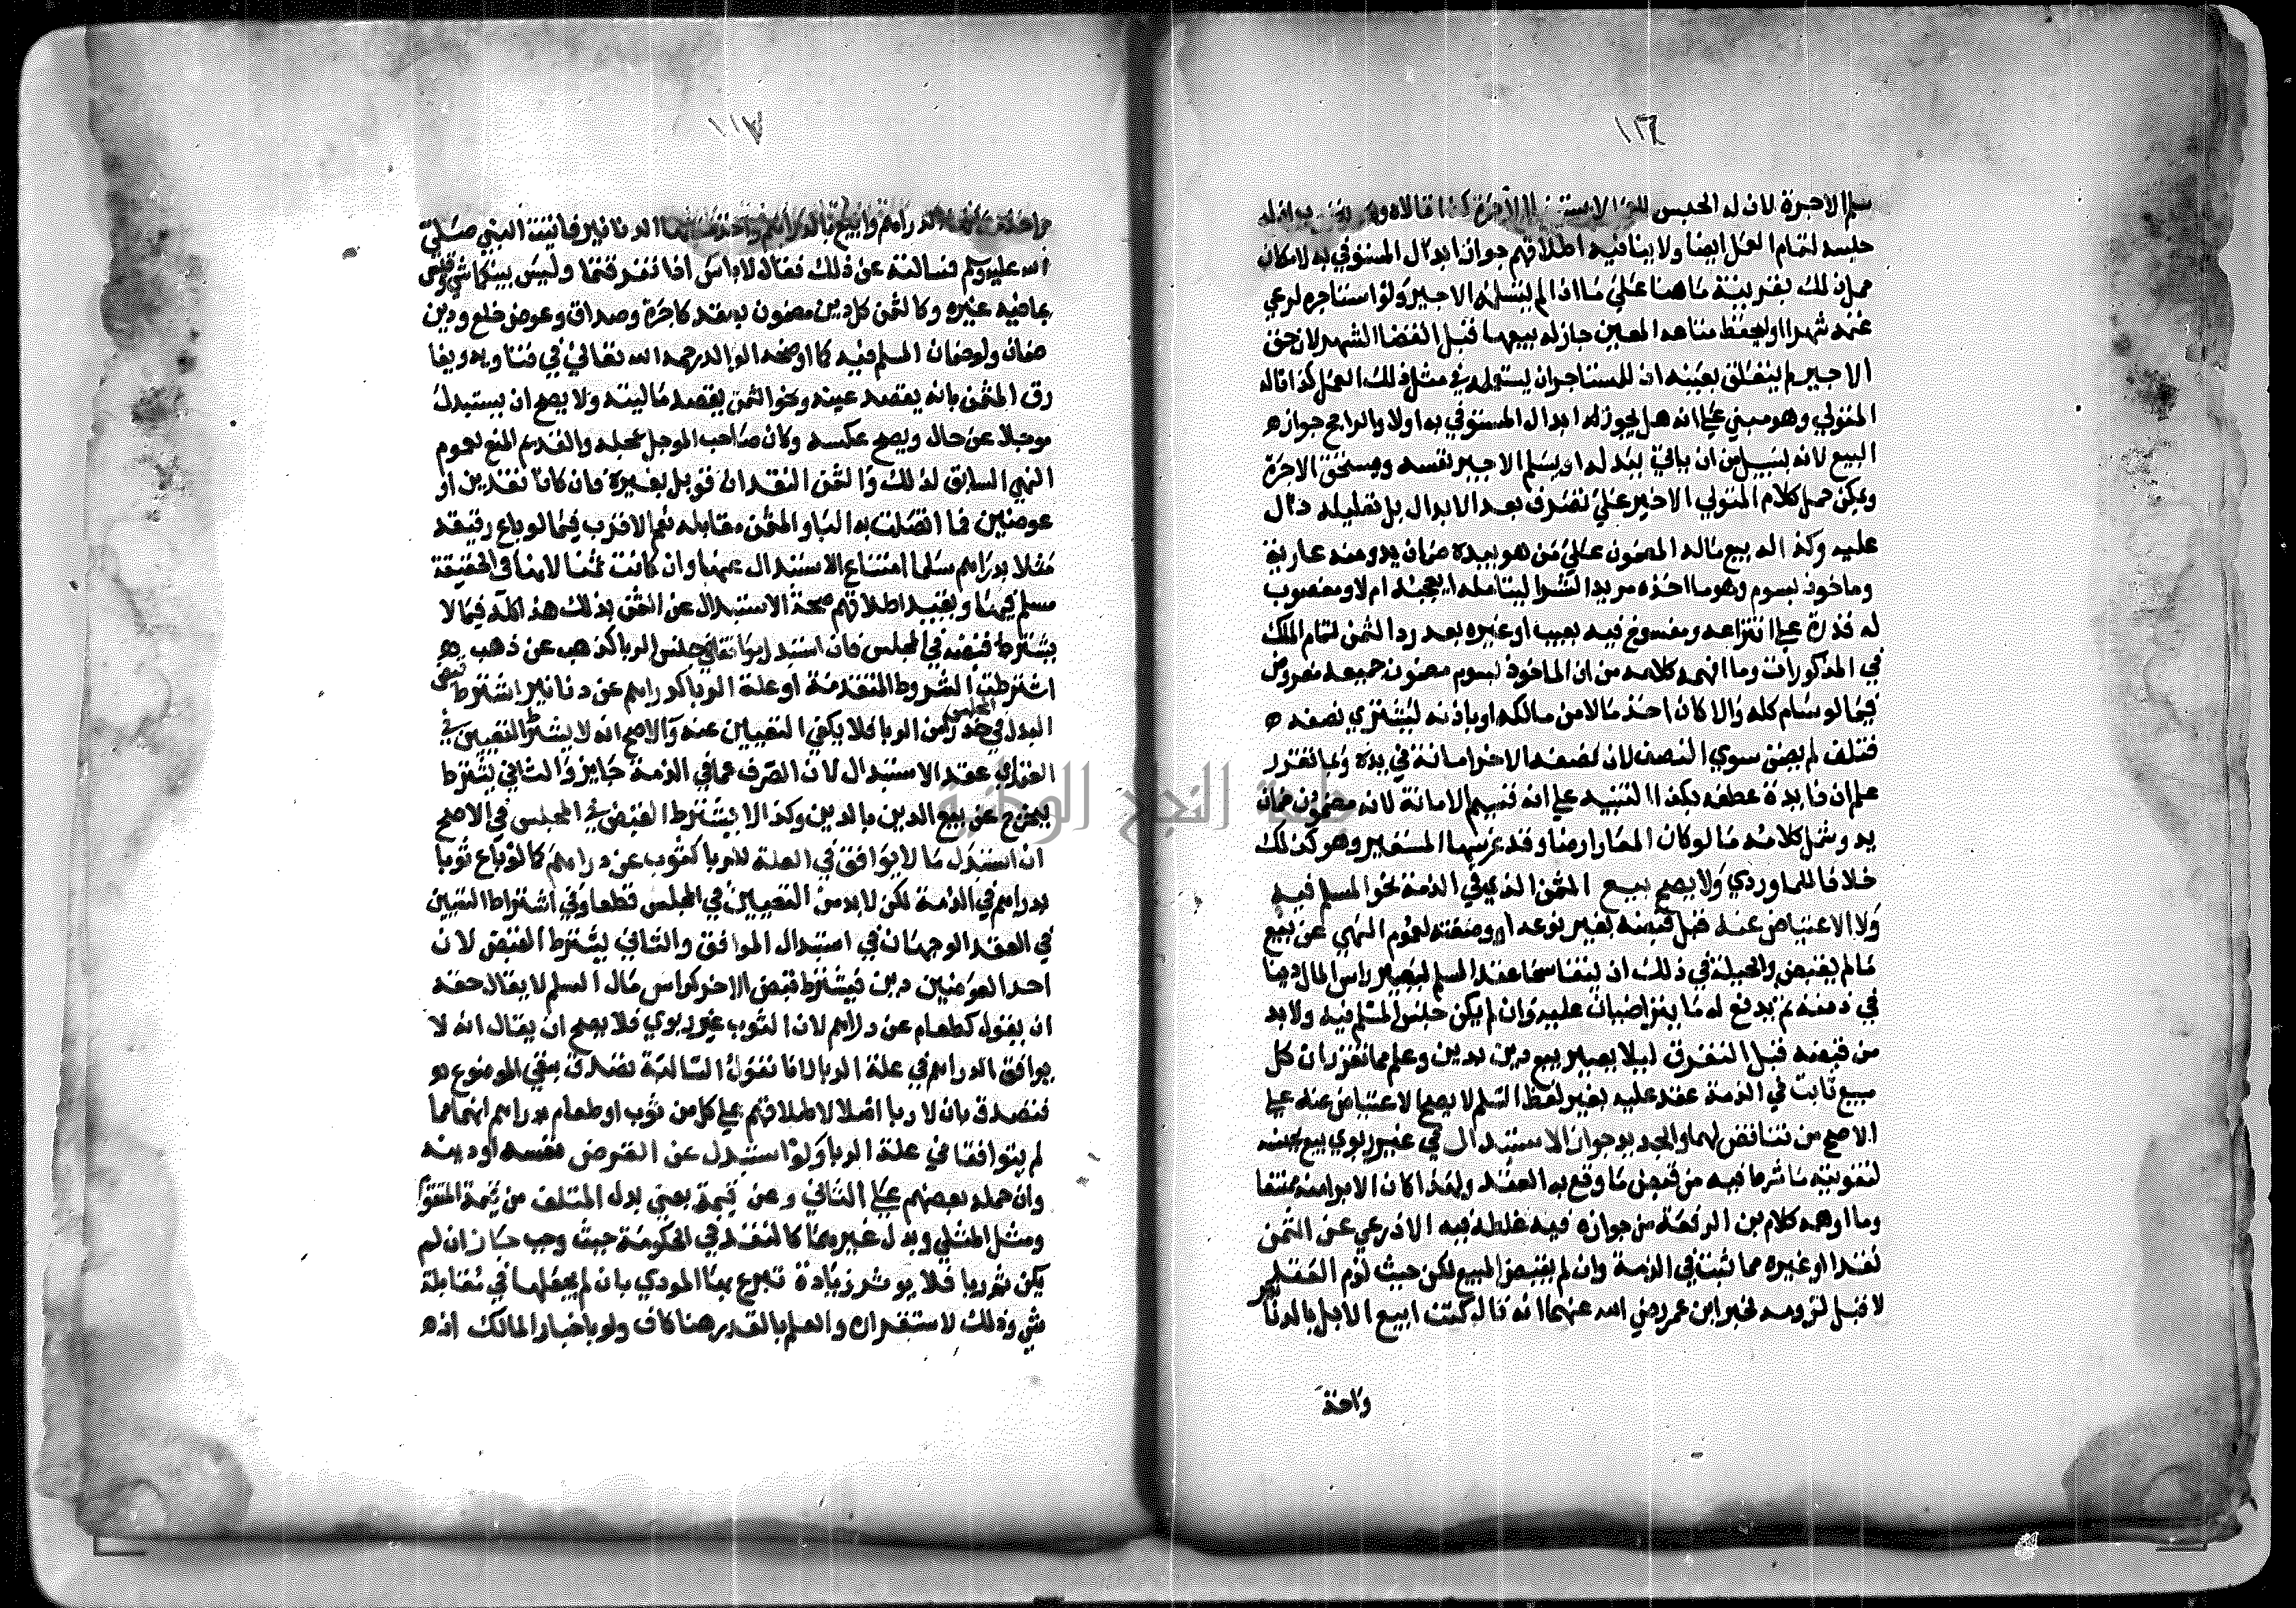 ١١٦
سلم الاجرة لان له الحبس للعمل الاستيفاء الاجرة كذا قالاه
حبسه لتمام العمل ايضا ولا ينافيه اطلاقهم جواز ابدال المستوفي به لامكان
حمل ذلك بقرينة ما هنا علي ما اذا لم يتسلمه الاجير ولو استاجره لرعي
غنمه شهرا او ليحفظ متاعه المعين جاز له بيعهما قبل انقضا الشهر لان حق
الاجير لم يتعلق بعينه اذ للمستاجر ان يستعمله في مثل ذلك العمل كذا قاله
المتولي وهو مبني علي انه هل يجوز له ابدال المستوفي به او لا والراجح جوازه
البيع لانه بسبيل من ان ياتي ببدله او يسلم الاجير نفسه ويستحق الاجرة
ويمكن حمل كلام المتولي الاخير علي تصرف بعد الابدال بل تعليله دال
عليه وكذا له بيع ماله المضمون علي من هو بيده ضمان يد ومنه عارية
وماخوذ بسوم وهو ما اخذه مريد الشرا ليتامله ايعجبه ام لا ومغصوب
له قدرة علي انتزاعه ومفسوخ فيه بعيب او غيره بعد رد الثمن لتمام الملك
في المذكورات وما افهمه كلامه من ان الماخوذ بسوم مضمون جميعه مفروض
فيما لو سام كله والا كان اخذ مالا من مالكه او باذنه ليشتري نصفه
فتلف لم يضمن سوي النصف لان نصفه الاخر امانة في يده وبما تقرر
علم ان فايدة عطفه بكذا التنبيه علي انه قسيم الامانة لانه مضمون ضمان
يد وشمل كلامه ما لو كان المعار ارضا وقد غرسها المستعير وهو كذلك
خلافا للماوردي ولا يصح بيع المثمن الذي في الذمة نحو المسلم فيه
ولا الاعتياض عنه قبل قبضه بغير نوعه او وصفه لعموم النهي عن بيع
ما لم يقبض والحيلة في ذلك ان يتفاسخا عقد السلم ليصير راس المال دينا
في ذمته ثم يدفع له ما يتراضيان عليه وان لم يكن جنس المسلم فيه ولا بد
من قبضه قبل التفرق ليلا يصير بيع دين بدين وعلم مما تقرر ان كل
مبيع ثابت في الذمة عقد عليه بغير لفظ السلم لا يصح الاعتياض عنه علي
الاصح من تناقض لهما والجديد جواز الاستبدال في غير ربوي بيع بجنسه
لتفويته ما شرط فيه من قبض ما وقع به العقد ولهذا كان الابرا منه ممتنعا
وما اوهمه كلام بن الرفعة من جوازه فيه غلطه فيه الاذرعي عن الثمن
نقدا او غيره مما ثبت في الذمة وان لم يقبض المبيع لكن حيث لزم العقد
لا قبل لزومه لخبر ابن عمر رضي الله عنهما انه قال كنت ابيع الابل بالدنانير
واخذ
١١٧
مكانها الدراهم وابيع بالدراهم واخذ مكانها الدنانير فاتيت النبي صلي
الله عليه وسلم فسالته عن ذلك فقال لا باس اذا تفرقتما وليس بينكما شي وقيس
بما فيه غيره وكالثمن كل دين مضمون بعقد كاجرة وصداق وعوض خلع ودين
ضمان ولو ضمان المسلم فيه كما اوضحه الوالد رحمه الله تعالي في فتاويه ويفا
رق المثمن بانه يقصد عينه ونحو الثمن يقصد ماليته ولا يصح ان يستبدل
موجلا عن حال ويصح عكسه وكان صاحب الموجل عجله والقديم المنع لعموم
النهي السابق لذلك والثمن النقد ان قوبل بغيره فان كانا نقدين او
عوضين فما اتصلت به البا والمثمن مقابله نعم الاقرب فيما لو باع رقيقه
مثلا بدراهم سلما امتناع الاستبدال عنها وان كانت ثمنا لانها في الحقيقة
مسلم فيها وبقيد اطلاقهم صحة الاستبدال عن الثمن بذلك هذا كله فيما لا
يشترط قبضه في المجلس فان استبدل موافقا في جنس الربا كذهب عن ذهب
اشترطت الشروط المتقدمة او علة الربا كدراهم عن دنانير اشترط قبض
البدل في المجلس حذرا من الربا فلا يكفي التعيين عنه والاصح انه لا يشترط التعيين في
العقد اي عقد الاستبدال لان الصرف عما في الذمة جايز والثاني يشترط
ليخرج عن بيع الدين بالدين وكذا لا يشترط القبض في المجلس في الاصح
ان استبدل ما لا يوافق في العلة للربا كثوب عن دراهم كما لو باع ثوبا
بدراهم في الذمة لكن لا بد من التعيين في المجلس قطعا وفي اشتراط التعيين
في العقد الوجهان في استبدال الموافق والثاني يشترط القبض لان
احد العوضين دين فيشترط قبض الاخر كراس مال السلم لا يقال حقه
ان يقول كطعام عن دراهم لان الثوب غير ربوي فلا يصح ان يقال انه لا
يوافق الدراهم في علة الربا لانا نقول السالبة تصدق بنفي الموضوع هو
فتصدق بان لا ربا اصلا لاطلاقهم علي كل من ثوب او طعام بدراهم انهما مما
لم يتوافقا في علة الربا ولو استبدل عن القرض نفسه او دينه
وان حمله بعضهم علي الثاني وعن قيمة يعني بدل المتلف من قيمة المتقوم
ومثل المثلي وبدل غيرهما كالنقد في الحكومة حيث وجب جاز ان لم
يكن ربويا فلا يوثر زيادة تبرع بها المودي بان لم يجعلها في مقابلة
شي وذلك لاستقراره والعلم بالقدر هنا كاف ولو باخبار المالك اذه